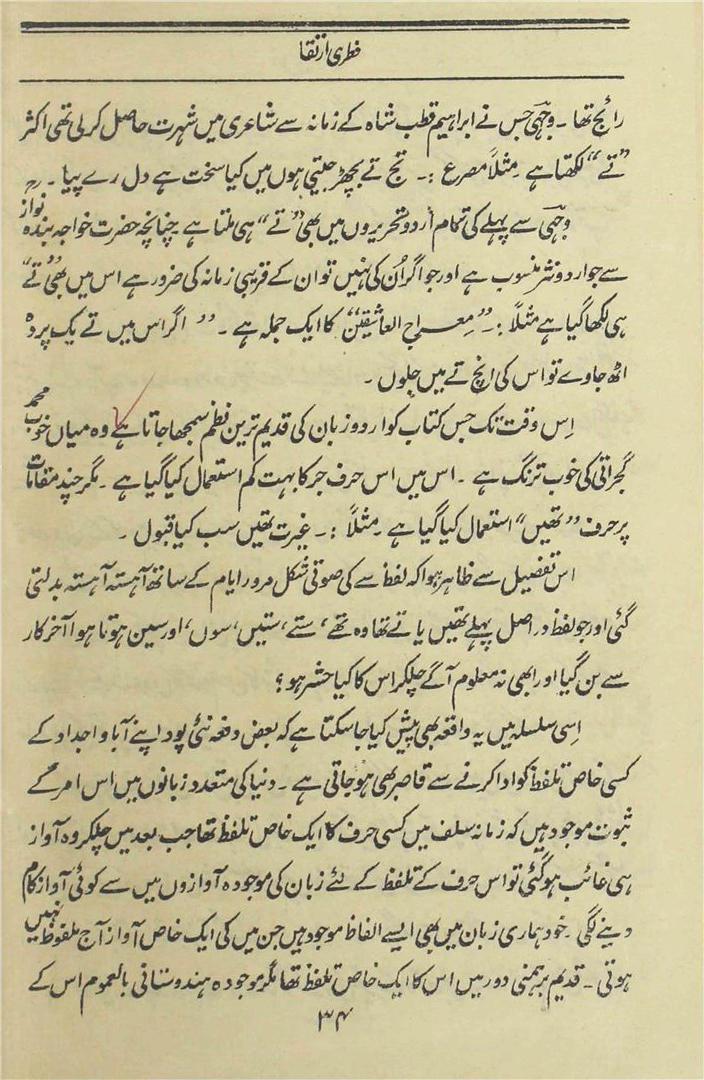 فطری ارتقا
رائج تھا ۔ وجہی جس نے ابراہیم قطب شاہ کے زمانہ سے شاعری میں شہرت حاصل کر لی تھی اکثر
”تے“ لکھتا ہے ۔ مثلاً مصرع :۔ تج تے بچھڑ جیتی ہوں میں کیا سخت ہے دل رے پیا ۔
وجہی سے پہلے کی تمام اردو تحریروں میں بھی ”تے“ ہی ملتا ہے چنانچہ حضرت خواجہ بندہ نواز رح
سے جو اردو نثر منسوب ہے اور جو اگر اُن کی نہیں تو ان کے قریبی زمانہ کی ضرور ہے اس میں بھی ”تے“
ہی لکھا گیا ہے مثلاً :۔ ”معراج العاشقین“ کا ایک جملہ ہے ۔ ” اگر اس میں تے یک پردہ
اٹھ جاوے تو اس کی انچ تے میں جلوں ۔
اِس وقت تک جس کتاب کو اردو زبان کی قدیم ترین نظم سمجھا جاتا ہے وہ میاں خوب محمد
گجراتی کی خوب ترنگ ہے ۔ اس میں اس حرف جر کا بہت کم استعمال کیا گیا ہے ۔ مگر چند مقامات
پر حرف ”تھیں“ استعمال کیا گیا ہے ۔ مثلاً :۔ غیرت تھیں سب کیا قبول ۔
اس تفصیل سے ظاہر ہوا کہ لفظ سے کی صوتی شکل مرور ایام کے ساتھ آہستہ آہستہ بدلتی
گئی اور جو لفظ در اصل پہلے تھیں یا تے تھا وہ تھے ، ستے ، ستیں ، سوں ، اور سین ہوتا ہوا آخر کار
سے بن گیا اور ابھی نہ معلوم آگے چلکر اس کا کیا حشر ہو ؟
اِسی سلسلہ میں یہ واقعہ بھی پیش کیا جا سکتا ہے کہ بعض دفعہ نئی پود اپنے آبا و اجداد کے
کسی خاص تلفظ کو ادا کرنے سے قاصر بھی ہو جاتی ہے ۔ دنیا کی متعدد زبانوں میں اس امر کے
ثبوت موجود ہیں کہ زمانہ سلف میں کسی حرف کا ایک خاص تلفظ تھا جب بعد میں چلکر وہ آواز
ہی غائب ہو گئی تو اس حرف کے تلفظ کے لئے زبان کی موجودہ آوازوں میں سے کوئی آواز کام
دینے لگی ۔ خود ہماری زبان میں بھی ایسے الفاظ موجود ہیں جن میں کی ایک خاص آواز آج ملفوظ نہیں
ہوتی ۔ قدیم برہمنی دور میں اس کا ایک خاص تلفظ تھا مگر موجودہ ہندوستانی بالعموم اس کے
۳۴